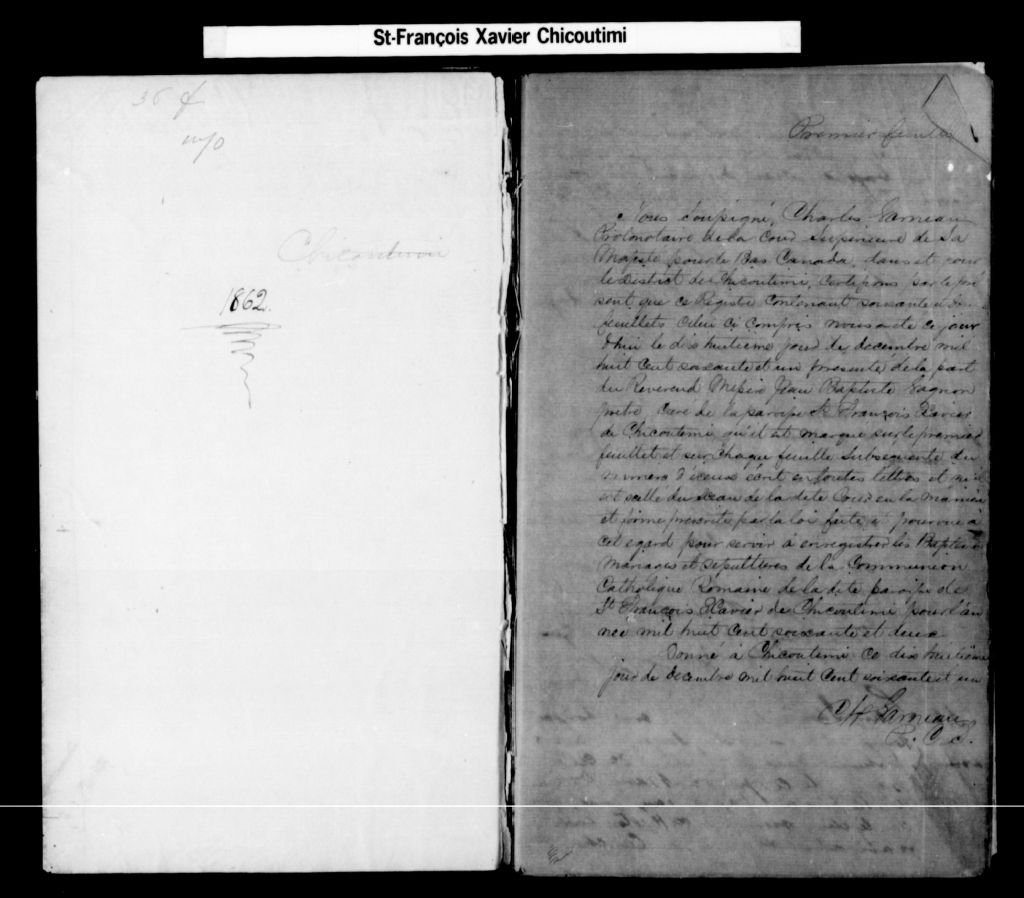 St-François Xavier Chicoutimi
36 f
Chicoutimi
1862.
Premier feuillet
Nous soussigné, Charles Garneau
Protonotaire de la Cour Supérieure de Sa
Majesté pour le Bas Canada, dans et pour
le District de Chicoutimi, Certifions par le pré
sent que ce Régistre Contenant soixante et
feuillets celui ci compris nous a été ce jour
d'hui le dix huitième jour de décembre mil
huit cent soixante et un presenté de la part
du Révérend Messire Jean Baptiste Gagnon
prêtre, Curé de la paroisse St François Xavier
de Chicoutimi qu'il est marqué sur le premier
feuillet et sur chaque feuille subséquente du
numéro d'iceux écrit en toutes lettres et qu'il
est scellé du sceau de la dite Cour en la manière
et forme prescrite par la loi faite et pourvue à
cet egard pour servir à enregistrer les Baptêmes
Mariages et sépultures de la Communion
Catholique Romaine de la dite paroisse de
St François Xavier de Chicoutimi pour l'an
née mil huit Cent soixante et deux
Donné à Chicoutimi ce dix huitième
jour de décembre mil huit cent soixante et un
Ch Garneau
P. C. S.